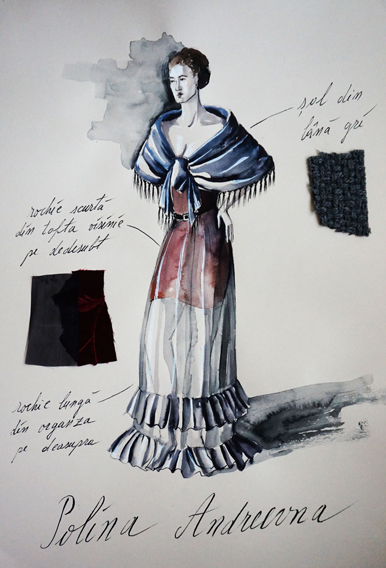 șal din
lână gri
rochie scurtă
din tafta vișinie
pe dedesubt
rochie lungă
din organza
pe deasupra
Polina Andreevna